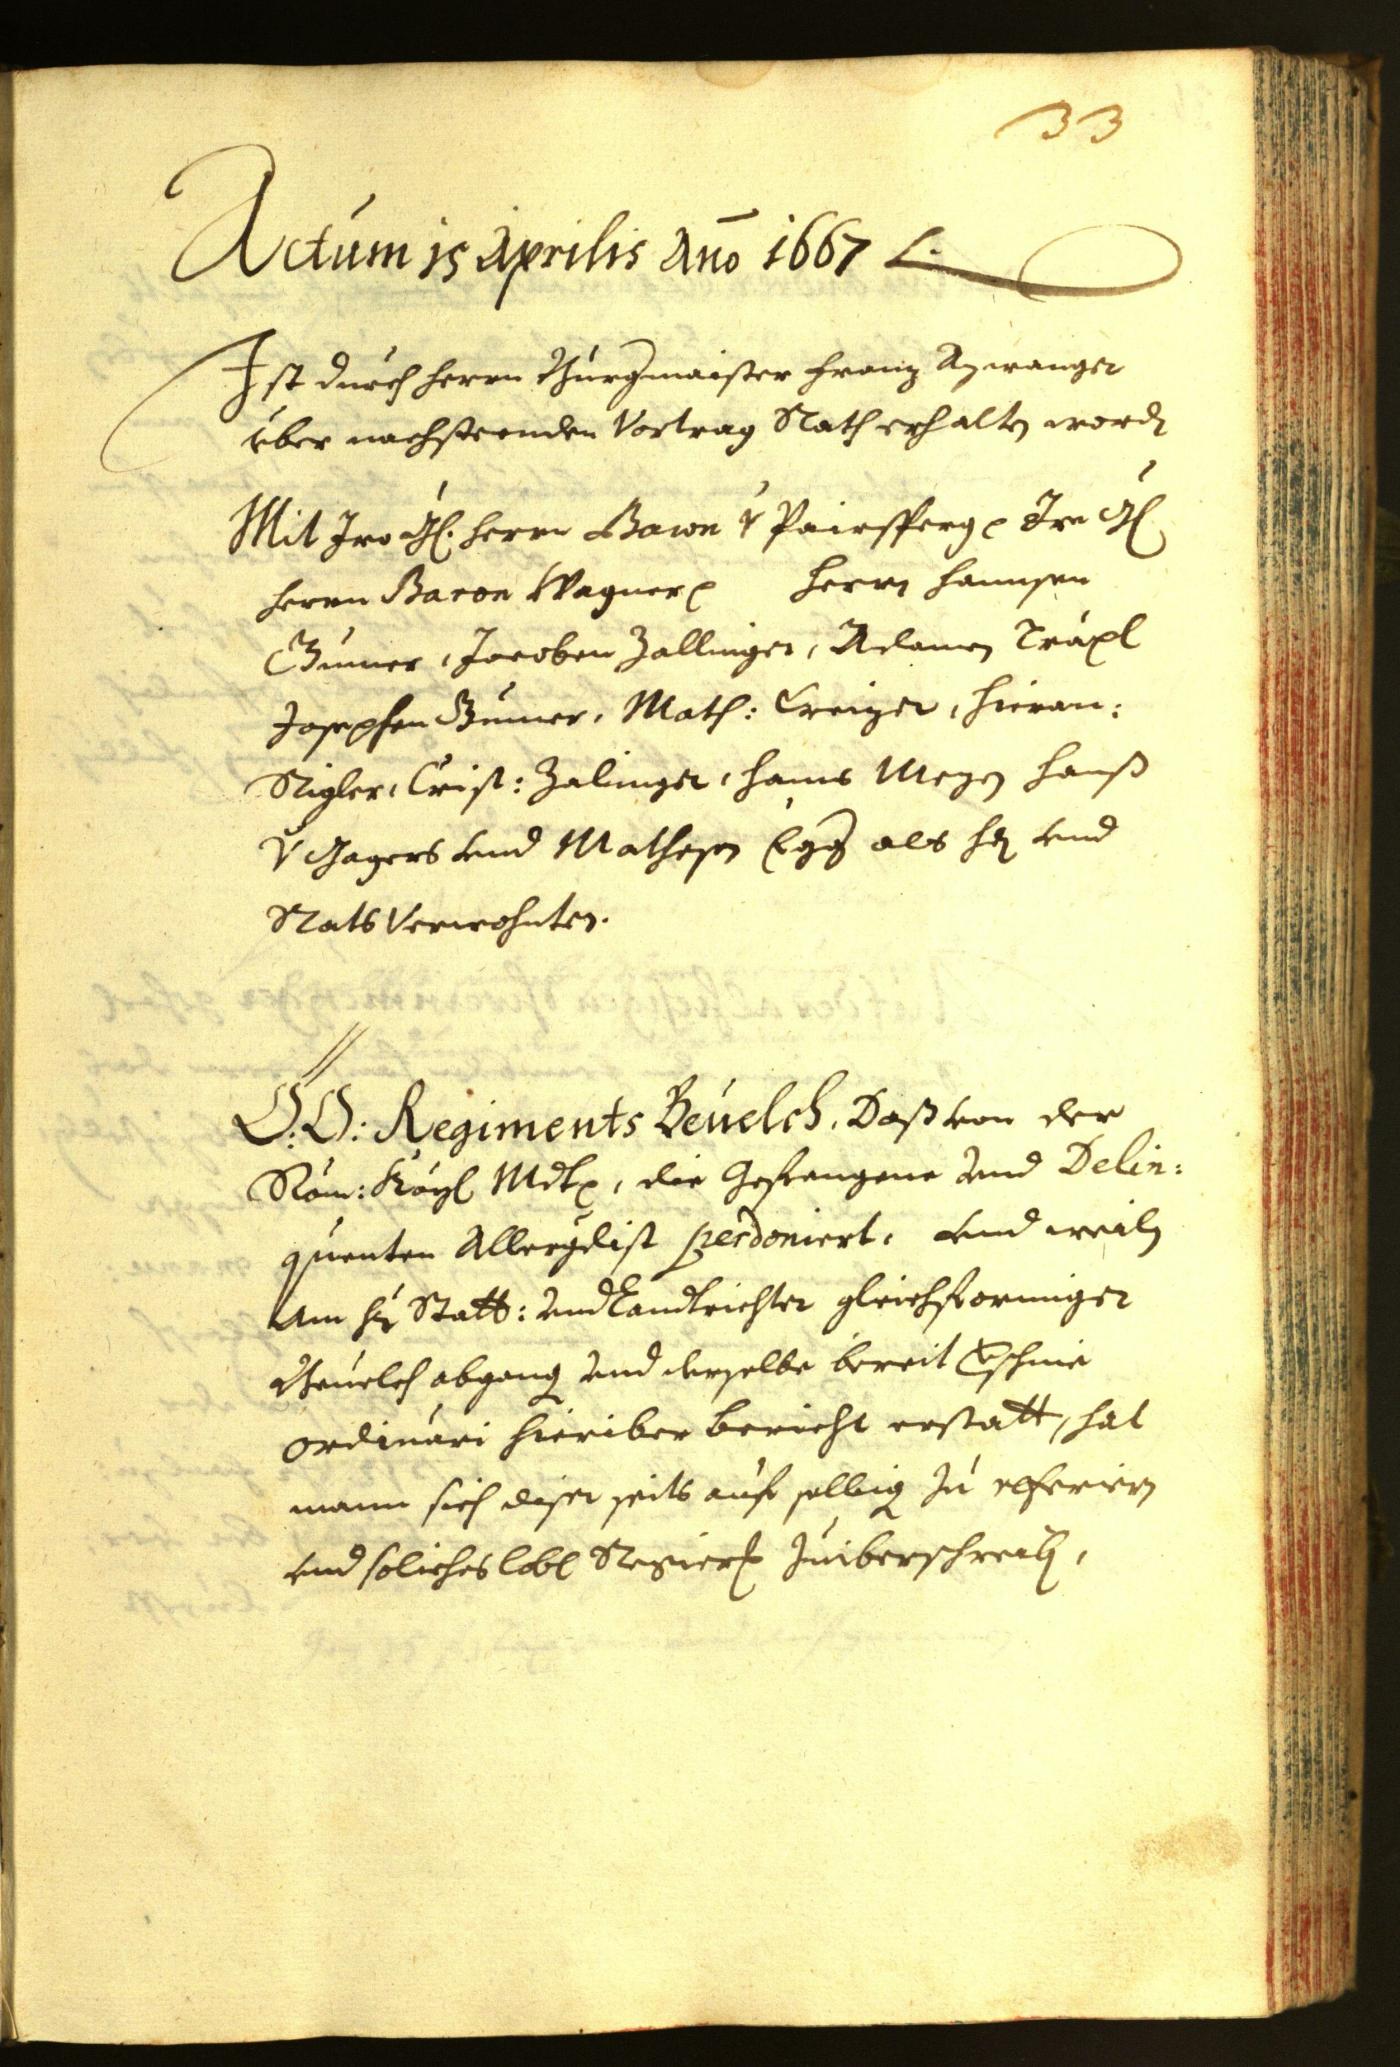 33
Actum 15 Aprilis Año 1667
Ist durch herrn Burgmaister Franz Azwanger
vber nachstenden Vortrag Rath erhalten word
Mit Iro Gl. herrn Baron v Pairsperg Iro Gl
herrn Baron Wagner herrn hannsen
Gumer, Jacoben Zallinger, Adamen Träxl
Josephen Gumer, Math: Creizer, hieran:
Rigler, Crist: Zalinger, hanns Mezen hanß
v Jagers vnd Mathesen Egg als h vnd
Rats Verwohnten.
O:Ö: Regiments Beuelch, Daß von der
Röm: Kayl Mdt, die Gefangene vnd Delin:
quenten Allergdist perdoniert, vnd weiln
Am h Statt: vnd Landtrichter gleichformiger
Beuelch abgang vnd derselbe bereit
ordinari hieriber bericht erstatt, hat
mann sich diser seits auf selbig zu referiern
vnd soliches lobl Regier zuiberschreib,